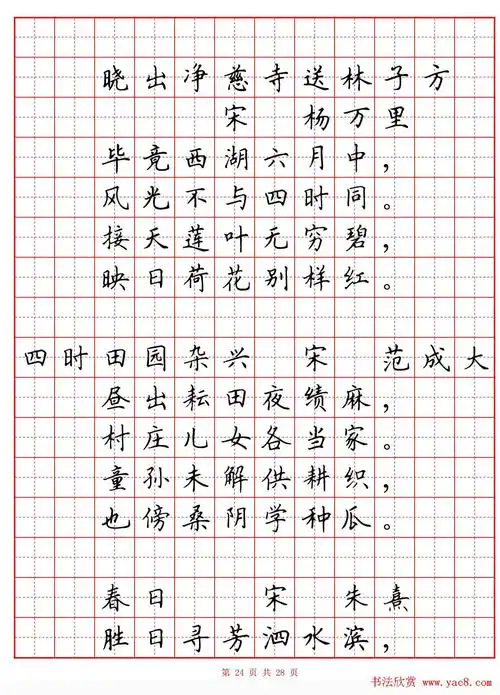 晓出净慈寺送林子方
宋 杨万里
毕竟西湖六月中，
风光不与四时同。
接天莲叶无穷碧，
映日荷花别样红。
四时田园杂兴 宋 范成大
昼出耘田夜绩麻，
村庄儿女各当家。
童孙未解供耕织，
也傍桑阴学种瓜。
春日 宋 朱熹
胜日寻芳泗水滨，
第 24 页 共 28 页
书法欣赏 www.yac8.com